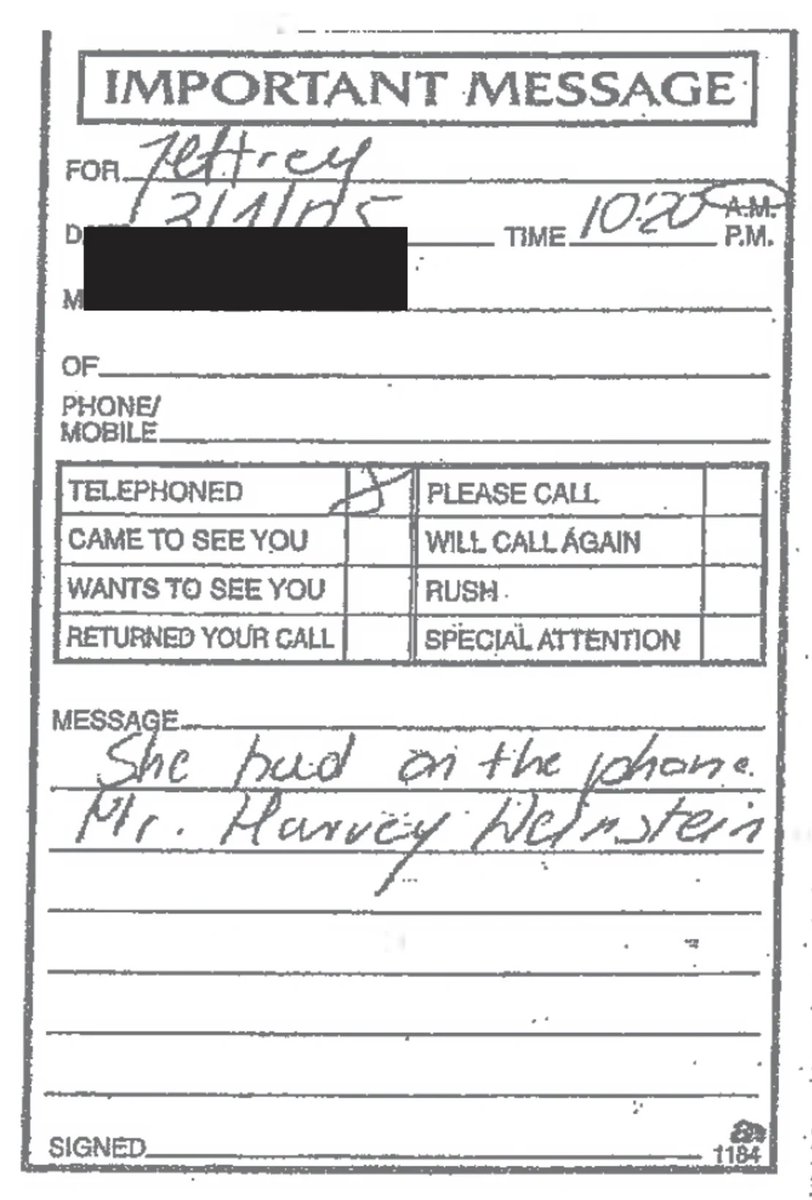 IMPORTANT MESSAGE
FOR Jeffrey
3/1/05 TIME 10:20 A.M.
P.M.
M
OF
PHONE/
MOBILE
TELEPHONED PLEASE CALL
CAME TO SEE YOU WILL CALL AGAIN
WANTS TO SEE YOU RUSH
RETURNED YOUR CALL SPECIAL ATTENTION
MESSAGE
She had on the phone.
Mr. Harvey Weinstein
SIGNED
1184